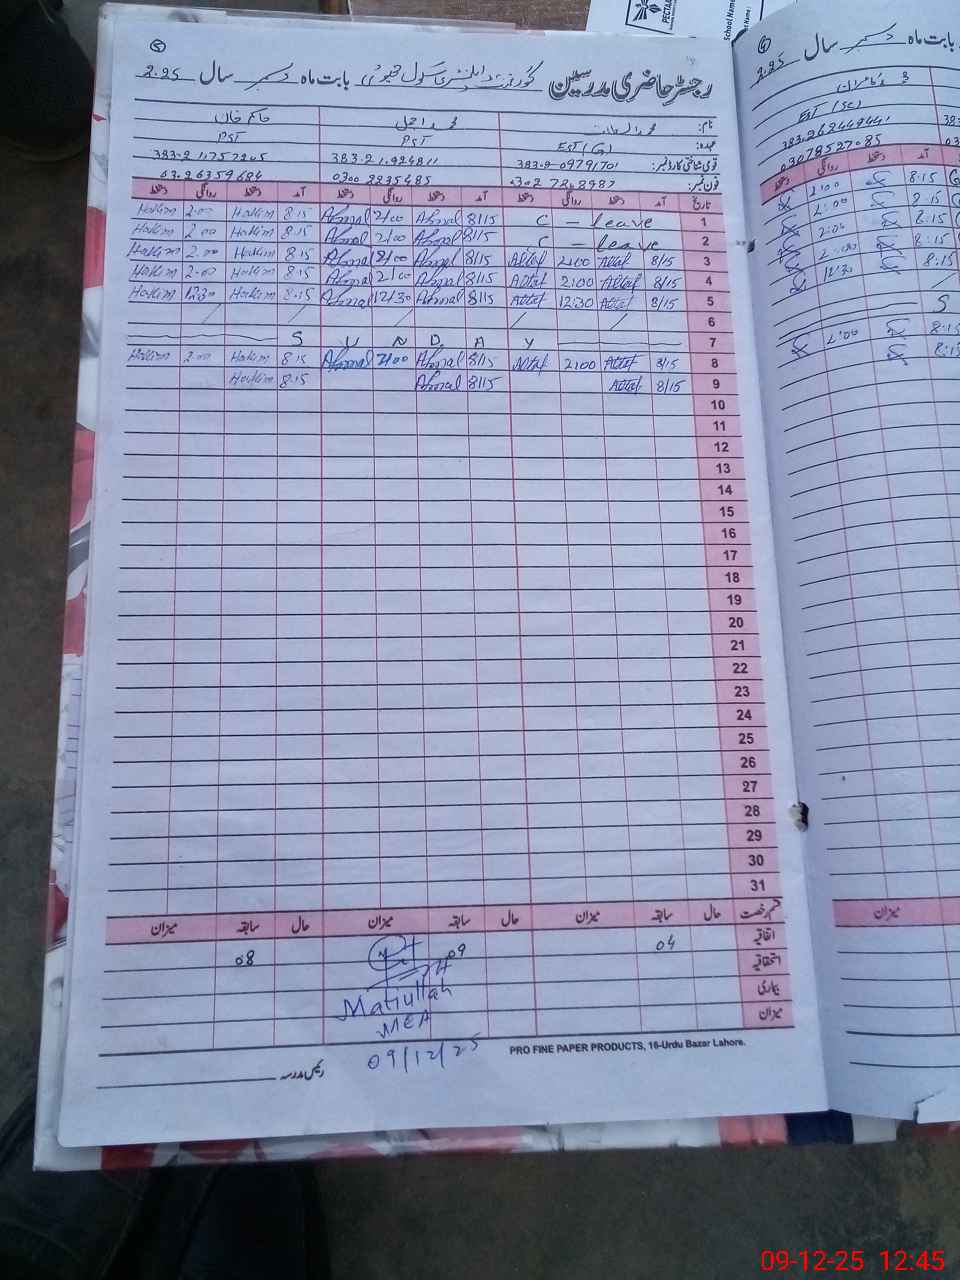 رجسٹر حاضری مدرسین گورنمنٹ ایلمنٹری سکول بابت ماہ دسمبر سال 2025
نام: محمد الطاف محمد اجمل حاکم خان
عہدہ: EST (G) PST PST
قومی شناختی کارڈ نمبر:
فون نمبر: 0300 2235485
تاریخ آمد دستخط روانگی دستخط آمد دستخط روانگی دستخط آمد دستخط روانگی دستخط
Hakim 2.00 Hakim 8.15 Ajmal 2/00 Ajmal 8/15 C - leave 1
Hakim 2.00 Hakim 8.15 Ajmal 2/00 Ajmal 8/15 C - leave 2
Hakim 2.00 Hakim 8.15 Ajmal 2/00 Ajmal 8/15 Altaf 2:00 Altaf 8/15 3
Hakim 2.00 Hakim 8.15 Ajmal 2/00 Ajmal 8/15 Altaf 2:00 Altaf 8/15 4
Hakim 12:30 Hakim 8.15 Ajmal 12/30 Ajmal 8/15 Altaf 12:30 Altaf 8/15 5
6
S U N D A Y 7
Hakim 2.00 Hakim 8.15 Ajmal 2/00 Ajmal 8/15 Altaf 2:00 Altaf 8/15 8
Hakim 8.15 Ajmal 8/15 Altaf 8/15 9
10
11
12
13
14
15
16
17
18
19
20
21
22
23
24
25
26
27
28
29
30
31
قسم رخصت حال سابقہ میزان حال سابقہ میزان حال سابقہ میزان
اتفاقیہ 04 09 08
استحقاقیہ
بیماری
میزان
Matiullah
MEA
09/12/25
رئیس مدرسہ
PRO FINE PAPER PRODUCTS, 16-Urdu Bazar Lahore.
سال دسمبر بابت ماہ
2025
EST (SC)
03078527085
آمد دستخط روانگی دستخط
2:00 8:15
2:00 8:15
2:00 8:15
2:00 8:15
12:30 8:15
S
2:00 8:15
8:15
میزان
PECTAA
School Name
09-12-25 12:45